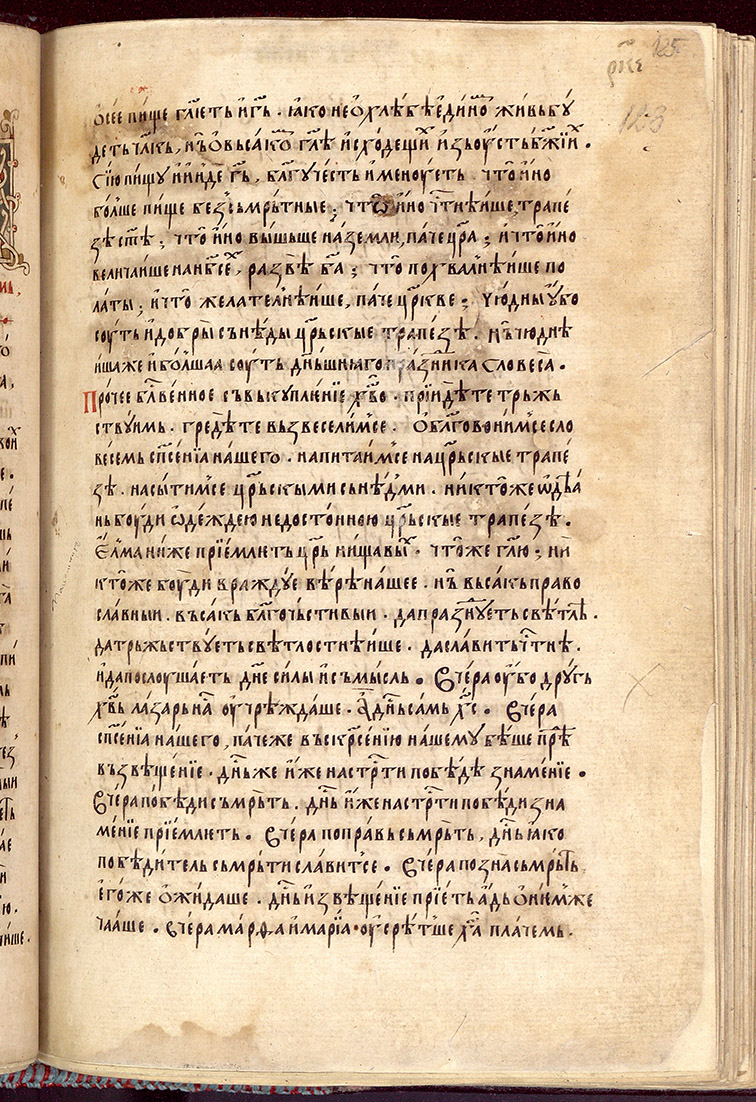 рк҃е 125
123
ѻ сее пище гл҃еть и гь҃ . ꙗко не ѻ хлѣбѣ единⷪ҇ живь бꙋ
деть чл҃кь , нь ѻ всако гл҃ѣ исходещиⷨ из оусть бж҃їиⷯ .
Сїю пищꙋ и инде гь҃ , бл҃гꙋ честь именоуеть . что ино
болше пище без͛смрьтные ; что ѡ ино чт҃нѣише, трапе
зѣ ст҃ѣ ; что ино вышьше на земли, паче цр҃а ; и что ино
величаише на нбс҃ехь, развѣ ба҃ ; что похвалнѣише по
латы ; и что желателнѣише, паче цр҃кве ; чюдны оубо
соуть и добры снѣды цр҃ьскые трапезѣ . нь чюднѣ
иша же и болшаа соуть дн҃ьшнꙗго празⷣника словеса .
Прочее бл҃гвенное съвькупленїе хв҃о . прїидѣте трьжь
ствꙋимь . гредѣте вьзвеселимсе . ѻбл҃говонимсе сло
весемь сп҃сенїа нашего . напитаимсе на цр҃ьскые трапе
зѣ . насытимсе цр҃ьскыми сьнѣдми . никтоже ѡдѣа
нь боуди ѡдеждею недостоиною цр҃ьскые трапезѣ .
Ел͛ма ниже прїемлють цр҃ь нища вы . что же гл҃ю ; ни
ктоже боуди враждꙋе вѣрѣ нашее . нь вьсакь право
славныи . вьсакь бл҃гочьстивыи . да празⷣнꙋеть свѣтлѣ .
да трьжьствꙋеть свѣтлостнѣише . да славить чт҃нѣ .
и да послоушаеть дн҃е силы и смысль . Вчера оубо дрꙋгь
хв҃ь лазарь на оучрѣждаше . а дн҃ь самь хс҃ . Вчера
сп҃сенїа нашего , паче же вьскрⷭ҇енїю нашемꙋ бѣше прѣⷣ
вьзвѣщенїе . дн҃ь же иже на стрⷭ҇ти побѣдѣ знаменїе .
Вчера побѣди смрьть . дн҃ь иже на стрⷭ҇ти побѣди зна
менїе прїемлеть . Вчера поправь сьмрьть , дн҃ь ꙗко
побѣдитель сьмрьти славитсе . Вчера позна сьмрьть
егоже ѻжидаше . дн҃ь извѣщенїе прїеть адь ѻ нем͛же
чааше . Вчера марѳа и марїа оусрѣтше ха҃ плачемь .